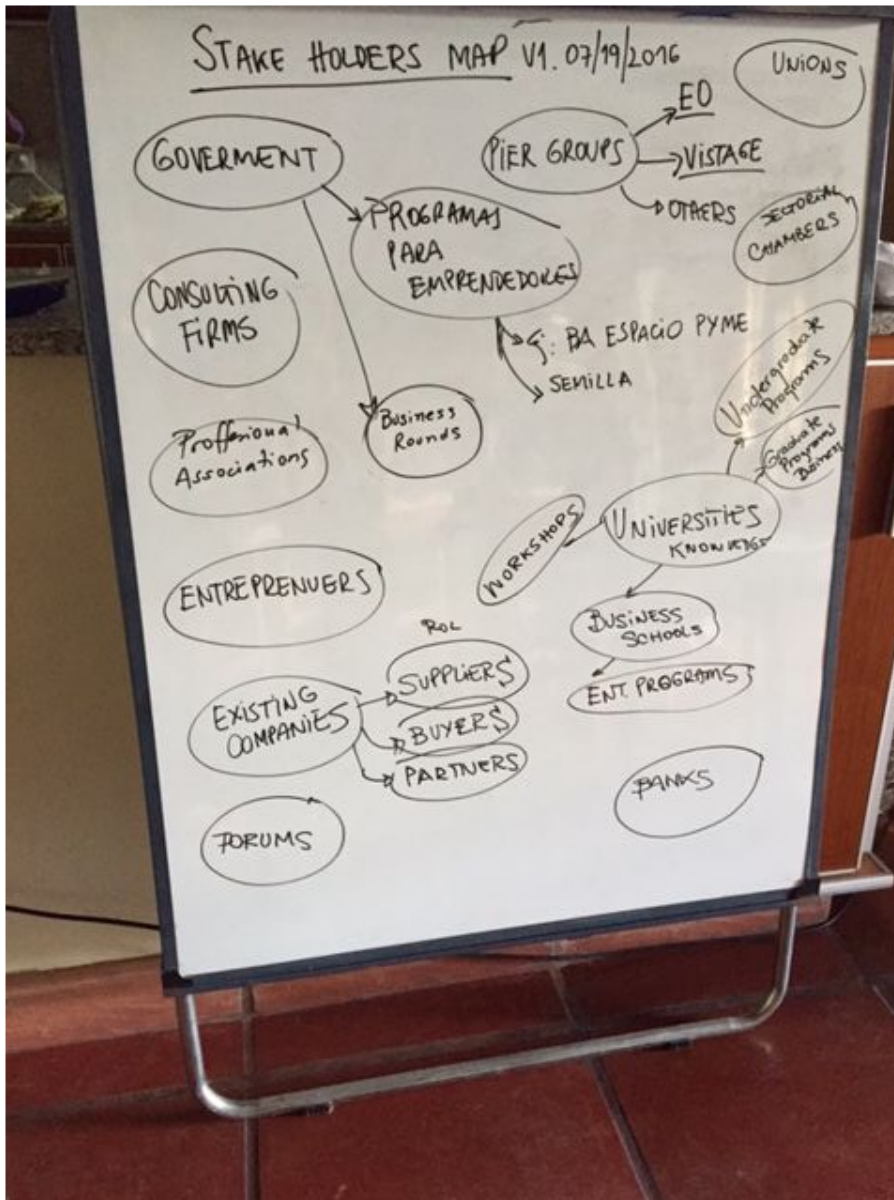 STAKE HOLDERS MAP V1. 07/19/2016
UNIONS
GOVERMENT
PIER GROUPS
EO
VISTAGE
OTHERS
SECTORIAL
CHAMBERS
PROGRAMAS
PARA
EMPRENDEDORES
CONSULTING
FIRMS
BA ESPACIO PYME
SEMILLA
Undergraduate
Programs
Graduate
Programs
Business
Business
Rounds
Proffesional
Associations
UNIVERSITIES
WORKSHOPS
ENTREPRENUERS
BUSINESS
SCHOOLS
ENT. PROGRAMS
ROL
EXISTING
COMPANIES
SUPPLIERS
BUYERS
PARTNERS
BANKS
FORUMS